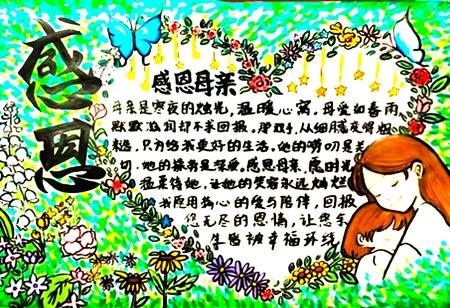 感恩
感恩母亲
母亲是寒夜的烛光，温暖心窝，母爱如春雨
默默滋润却不求回报。那双手，从细腻变得粗
糙，只为给我更好的生活。她的唠叨是关
切，她的操劳是深爱。感恩母亲，愿时光
温柔待她，让她的笑容永远灿烂
我应用 心的爱与陪伴，回报
您无尽的恩情，让您余
生皆被幸福环绕